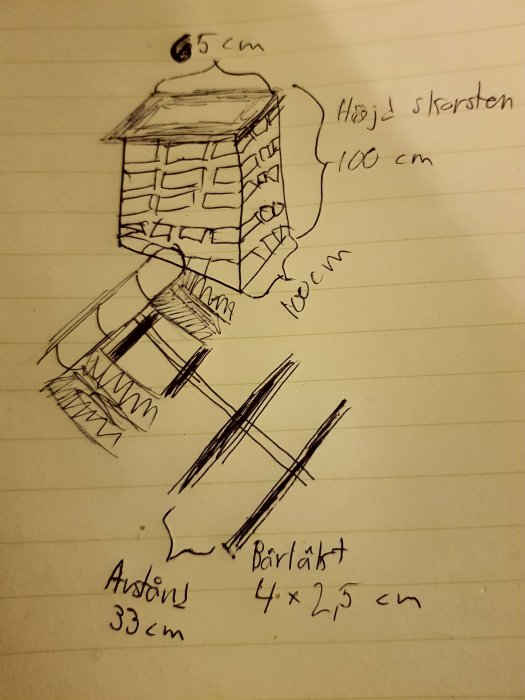 65 cm
Höjd skorsten
100 cm
100cm
Bärläkt
4 x 2,5 cm
Avstånd
33cm